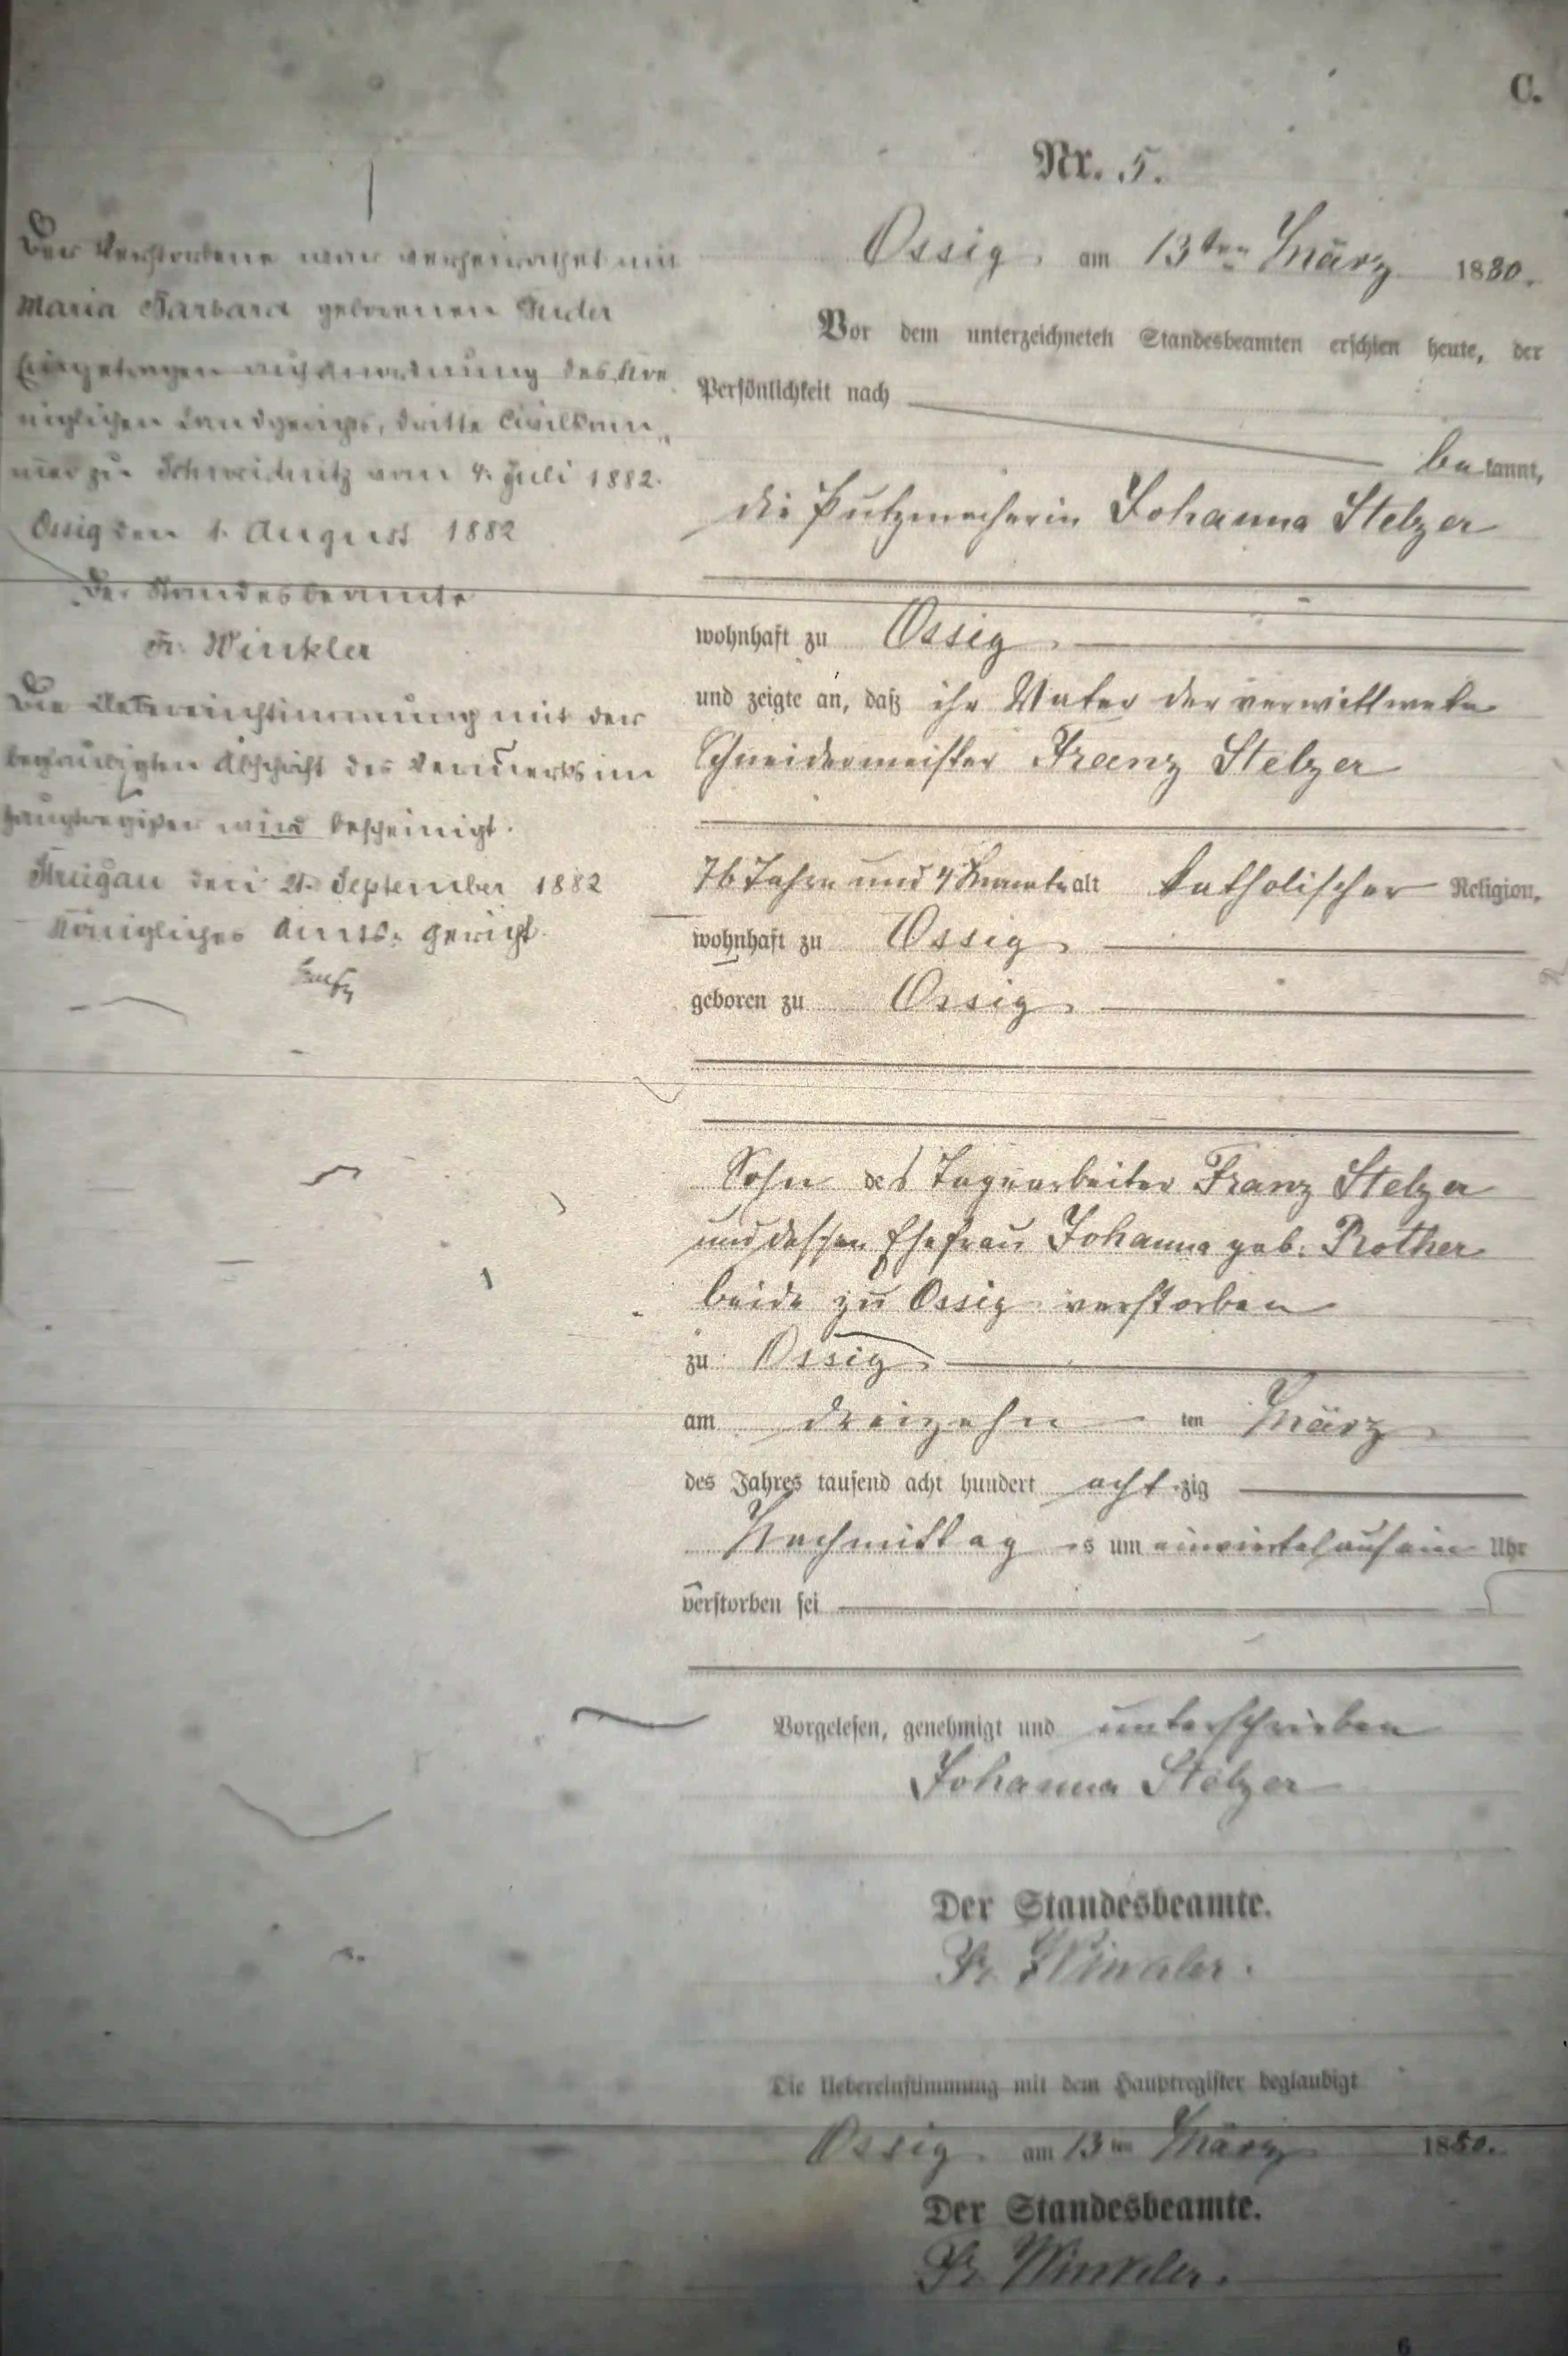 C.
Nr. 5.
Ossig, am 13ten März 1880.
Vor dem unterzeichneten Standesbeamten erschien heute, der
Persönlichkeit nach
bekannt,
die Putzmacherin Johanna Stelzer
wohnhaft zu Ossig,
und zeigte an, daß ihr Vater der verwittwete
Schneidermeister Franz Stelzer
76 Jahre und 4 Monate alt katholischer Religion,
wohnhaft zu Ossig,
geboren zu Ossig,
Sohn des Tagearbeiter Franz Stelzer
und dessen Ehefrau Johanna geb. Rother
beide zu Ossig verstorben
zu Ossig,
am dreizehn ten März
des Jahres tausend acht hundert achtzig
Nachmittags um einviertel auf ein Uhr
verstorben sei
Vorgelesen, genehmigt und unterschrieben
Johanna Stelzer
Der Standesbeamte.
Fr. Winkler.
Die Uebereinstimmung mit dem Hauptregister beglaubigt
Ossig, am 13ten März 1880.
Der Standesbeamte.
Fr. Winkler.
6
Der Verstorbene war verheirathet mit
Maria Barbara geborenen
Eingetragen auf Anordnung des Kö-
niglichen Landgerichts, dritte Civilkam-
mer zu Schweidnitz vom 4. Juli 1882.
Ossig den 1. August 1882
Der Standesbeamte
Fr. Winkler
Die Uebereinstimmung mit der
beglaubigten Abschrift des Vermerks im
Hauptregister wird bescheinigt.
Striegau den 21. September 1882
Königliches Amts-Gericht.